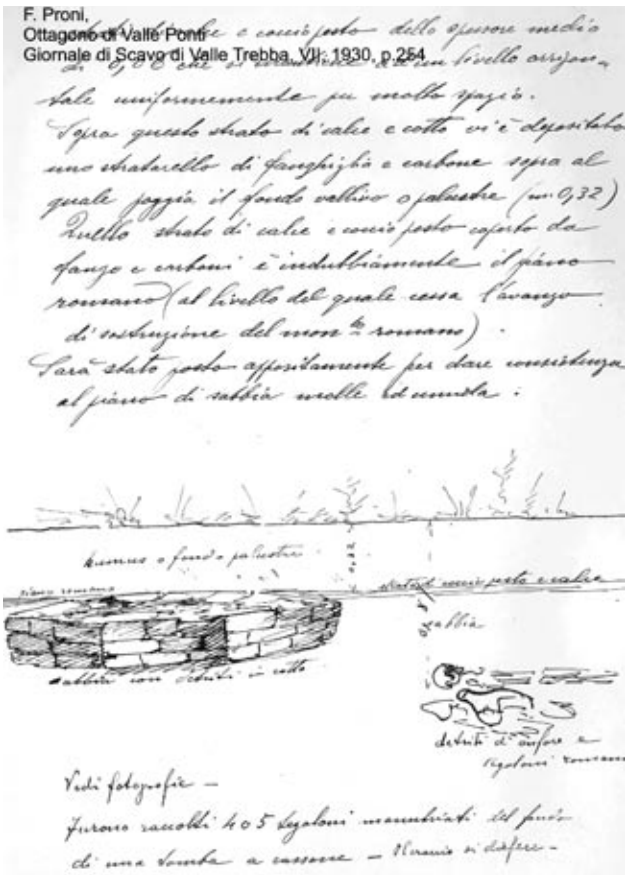 F. Proni,
Ottagono di Valle Ponti
Giornale di Scavo di Valle Trebba, VII; 1930, p.254
calce e coccio pesto dello spessore medio
di 0,06 che si mantiene ad un livello orizzon-
tale uniformemente per molto spazio.
Sopra questo strato di calce e cotto vi è depositato
uno straterello di fanghiglia e carbone sopra al
quale poggia il fondo vallivo o palustre (m. 0,32)
Quello strato di calce e coccio pesto coperto da
fango e carboni è indubbiamente il piano
romano (al livello del quale cessa l'avanzo
di sostruzione del mon.to romano).
Sarà stato posto appositamente per dare consistenza
al piano di sabbia molle ed umida:
humus o fondo palustre
0,32
piano romano
strato di coccio pesto e calce
sabbia
sabbia con detriti in cotto
detriti d'anfore e
tegoloni romani
Vedi fotografie -
Furono raccolti 4 o 5 tegoloni manubriati del fondo
di una tomba a cassone -